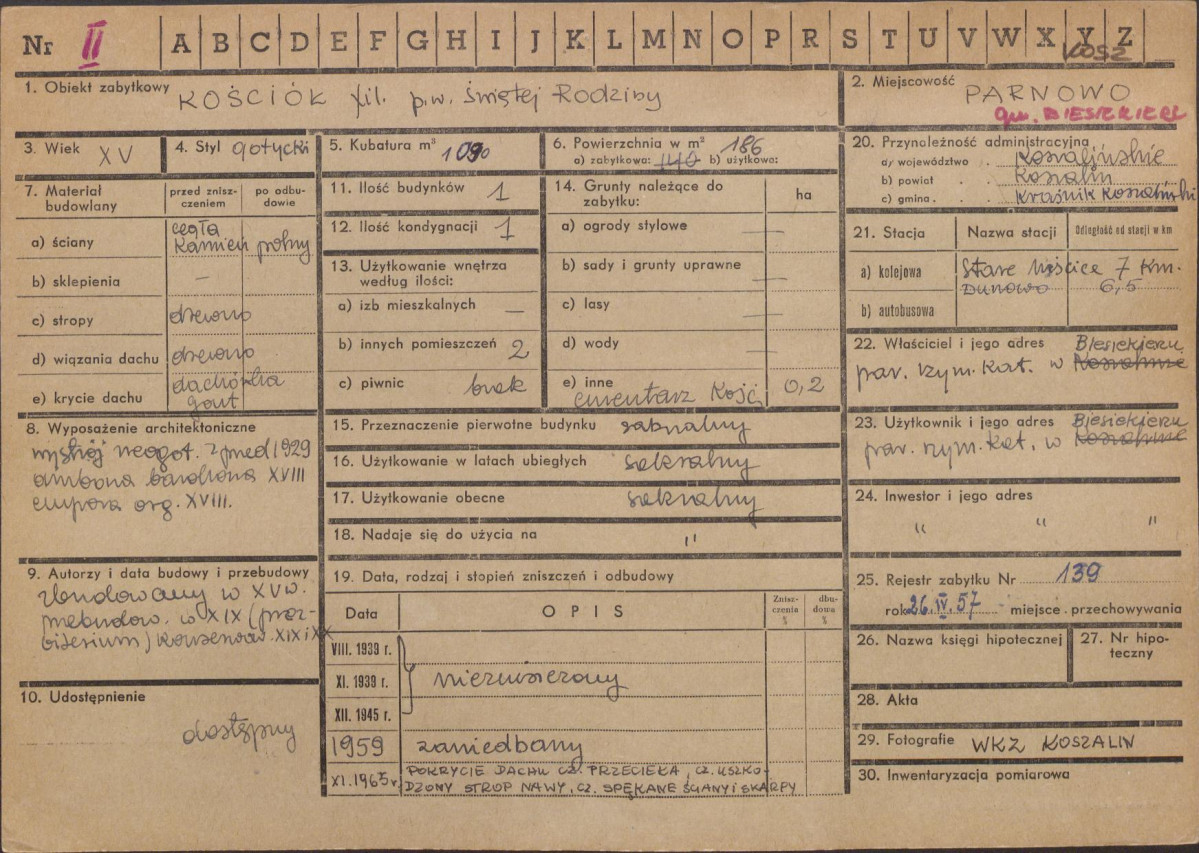 Nr II A B C D E F G H I J K L M N O P R S T U V W X Y Z
KOSZ
1. Obiekt zabytkowy KOŚCIÓŁ fil. p.w. Świętej Rodziny
2. Miejscowość PARNOWO
gm. BIESIEKIERZ
3. Wiek XV
4. Styl gotycki
5. Kubatura m³ 1090
6. Powierzchnia w m² 186
a) zabytkowa: 140 b) użytkowa:
7. Materiał budowlany
przed zniszczeniem
po odbudowie
a) ściany cegła
kamień polny
b) sklepienia —
c) stropy drewno
d) wiązania dachu drewno
e) krycie dachu dachówka
gont
8. Wyposażenie architektoniczne
wystrój neogot. sprzed 1929
ambona barokowa XVIII
empora org. XVIII.
9. Autorzy i data budowy i przebudowy
zbudowany w XV w.
przebudow. w XIX (prez-
biterium) konserwow. XIX i XX
10. Udostępnienie
dostępny
11. Ilość budynków 1
12. Ilość kondygnacji 1
13. Użytkowanie wnętrza
według ilości:
a) izb mieszkalnych —
b) innych pomieszczeń 2
c) piwnic brak
14. Grunty należące do
zabytku:
ha
a) ogrody stylowe —
b) sady i grunty uprawne —
c) lasy —
d) wody —
e) inne
cmentarz kość. 0,2
15. Przeznaczenie pierwotne budynku sakralny
16. Użytkowanie w latach ubiegłych sakralny
17. Użytkowanie obecne sakralny
18. Nadaje się do użycia na "
19. Data, rodzaj i stopień zniszczeń i odbudowy
Data
OPIS
Zniszczenia %
dbudowa %
VIII. 1939 r.
XI. 1939 r. niezniszczony
XII. 1945 r.
1959 zaniedbany
XI. 1965 r. POKRYCIE DACHU CZ. PRZECIEKA, CZ. USZKO-
DZONY STROP NAWY, CZ. SPĘKANE ŚCIANY I SKARPY
20. Przynależność administracyjna
a) województwo . koszalińskie
b) powiat . . Koszalin
c) gmina . . Kraśnik Koszaliński
21. Stacja
Nazwa stacji
Odległość od stacji w km
a) kolejowa Stare Bielice 7 km.
Dunowo 6,5
b) autobusowa
22. Właściciel i jego adres Biesiekierz
par. rzym. kat. w Koszalinie
23. Użytkownik i jego adres Biesiekierz
par. rzym. kat. w Koszalinie
24. Inwestor i jego adres
" " "
25. Rejestr zabytku Nr 139
rok 26.IV.57 miejsce przechowywania
26. Nazwa księgi hipotecznej
27. Nr hipo-
teczny
28. Akta
29. Fotografie WKZ KOSZALIN
30. Inwentaryzacja pomiarowa